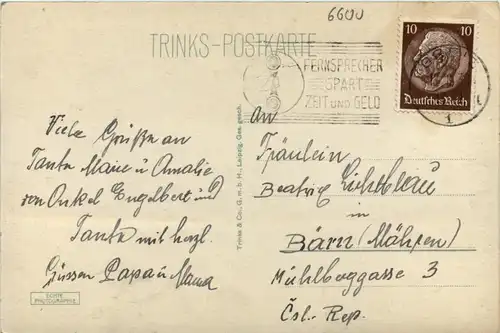 6600
TRINKS-POSTKARTE
FERNSPRECHER
SPART
ZEIT UND GELD
10 10
Deutsches Reich
Viele Grüße an
Tante Marie u Amalie
von Onkel Engelbert und
Tante mit herzl.
Küssen Papa u Mama
ECHTE
PHOTOGRAPHIE
Trinks & Co., G. m. b. H., Leipzig. Ges. gesch.
An
Fräulein
Beatrix Lichtblau
in
Bärn (Mähren)
Mühlberggasse 3
Čsl. Rep.